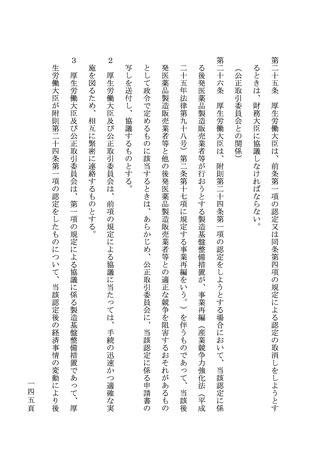 第二十五条　厚生労働大臣は、前条第一項の認定又は同条第四項の規定による認定の取消しをしようとす
るときは、財務大臣に協議しなければならない。
（公正取引委員会との関係）
第二十六条　厚生労働大臣は、附則第二十四条第一項の認定をしようとする場合において、当該認定に係
る後発医薬品製造販売業者等が行おうとする製造基盤整備措置が、事業再編（産業競争力強化法（平成
二十五年法律第九十八号）第二条第十七項に規定する事業再編をいう。）を伴うものであって、当該後
発医薬品製造販売業者等と他の後発医薬品製造販売業者等との適正な競争を阻害するおそれがあるもの
として政令で定めるものに該当するときは、あらかじめ、公正取引委員会に、当該認定に係る申請書の
写しを送付し、協議するものとする。
２　厚生労働大臣及び公正取引委員会は、前項の規定による協議に当たっては、手続の迅速かつ適確な実
施を図るため、相互に緊密に連絡するものとする。
３　厚生労働大臣及び公正取引委員会は、第一項の規定による協議に係る製造基盤整備措置であって、厚
生労働大臣が附則第二十四条第一項の認定をしたものについて、当該認定後の経済事情の変動により後
一四五頁